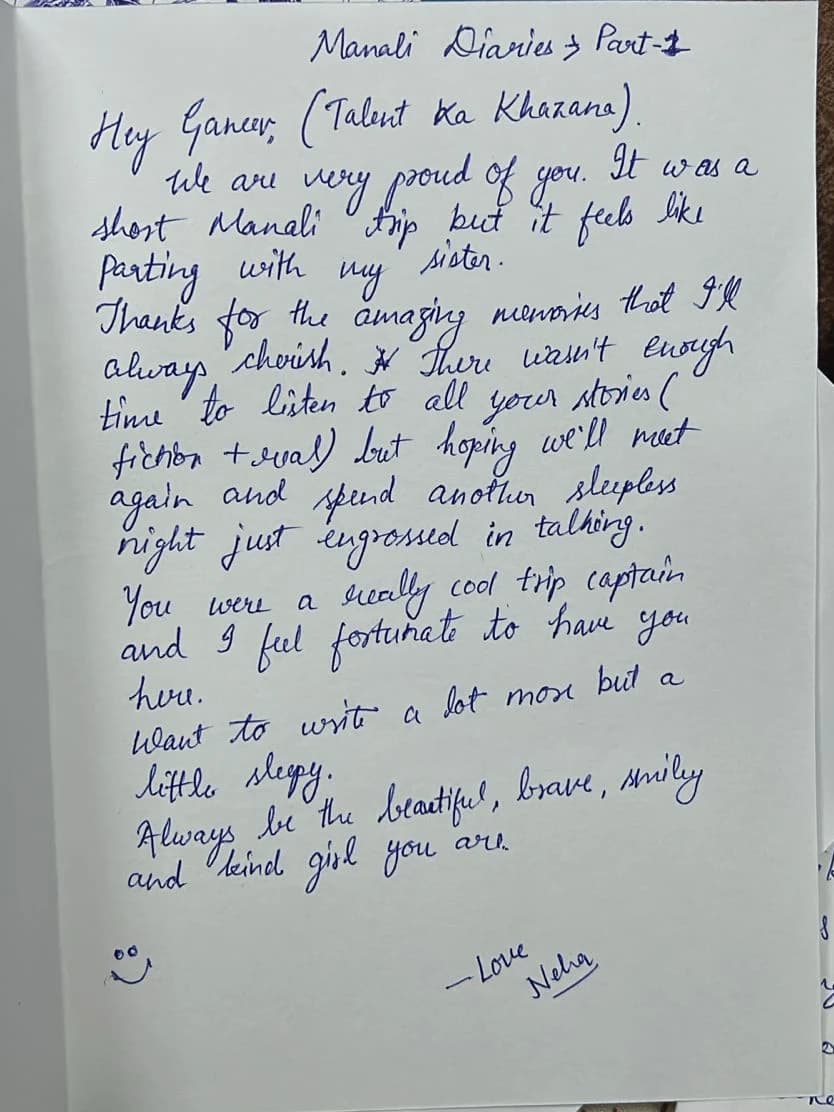 Manali Diaries → Part-1
Hey (Talent Ka Khazana).
We are very proud of you. It was a
short Manali trip but it feels like
Parting with my sister.
Thanks for the amazing memories that I'll
always cherish. There wasn't enough
time to listen to all your stories (
fiction + real) but hoping we'll meet
again and spend another sleepless
night just engrossed in talking.
You were a really cool trip captain
and I feel fortunate to have you
here.
Want to write a lot more but a
little sleepy.
Always be the beautiful, brave, smiley
and kind girl you are.
- Love
Neha